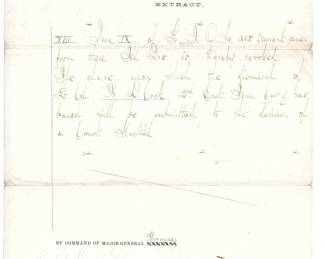 EXTRACT.
VIII Par IX of G. F. O. No 215 current series
from these Hd Qrs is hereby revoked
The charge upon which the dismissal of
Lt Col Cook East Tenn Cav was
based will be submitted to the decision of
a Court Martial
BY COMMAND OF MAJOR-GENERAL Thomas